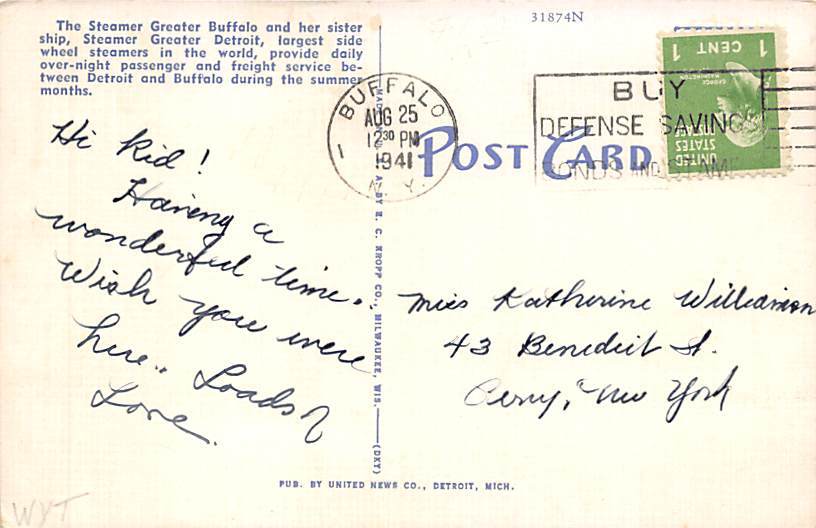 The Steamer Greater Buffalo and her sister
ship, Steamer Greater Detroit, largest side
wheel steamers in the world, provide daily
over-night passenger and freight service be-
tween Detroit and Buffalo during the summer
months.
31874N
BUFFALO
AUG 25
12 30 PM
1941
N.Y.
1 CENT 1
GEORGE
WASHINGTON
UNITED
STATES
BUY
DEFENSE SAVINGS
BONDS AND STAMPS
POST CARD
Hi Kid!
Having a
wonderful time.
Wish you were
here. Loads of
Love.
Miss Katherine Williamson
43 Benedict St.
Perry, New York
E. C. KROPP CO., MILWAUKEE, WIS.—(DKT)
PUB. BY UNITED NEWS CO., DETROIT, MICH.
WYT